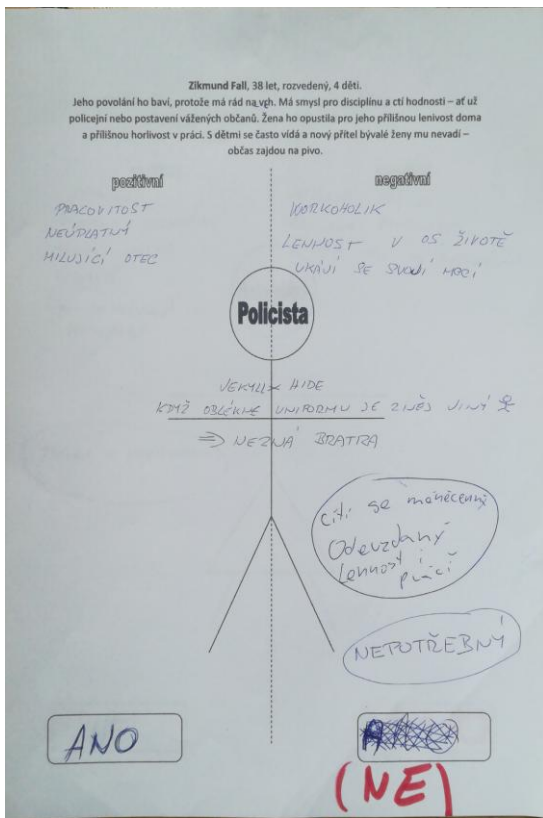 Zikmund Fall, 38 let, rozvedený, 4 děti.
Jeho povolání ho baví, protože má rád navrh. Má smysl pro disciplínu a ctí hodnosti – ať už
policejní nebo postavení vážených občanů. Žena ho opustila pro jeho přílišnou lenivost doma
a přílišnou horlivost v práci. S dětmi se často vídá a nový přítel bývalé ženy mu nevadí –
občas zajdou na pivo.
pozitivní
negativní
PRACOVITOST
NEÚPLATNÝ
MILUJÍCÍ OTEC
WORKOHOLIK
LENNOST V OS. ŽIVOTĚ
UKÁJÍ SE SVOJÍ MOCÍ
Policista
JEKYLL X HIDE
KDYŽ OBLÉKNE UNIFORMU JE Z NĚJ JINÝ
=> NEZNÁ BRATRA
cítí se méněcenný
Odevzdaný
Lennost i
práci
NEPOTŘEBNÝ
ANO
(NE)